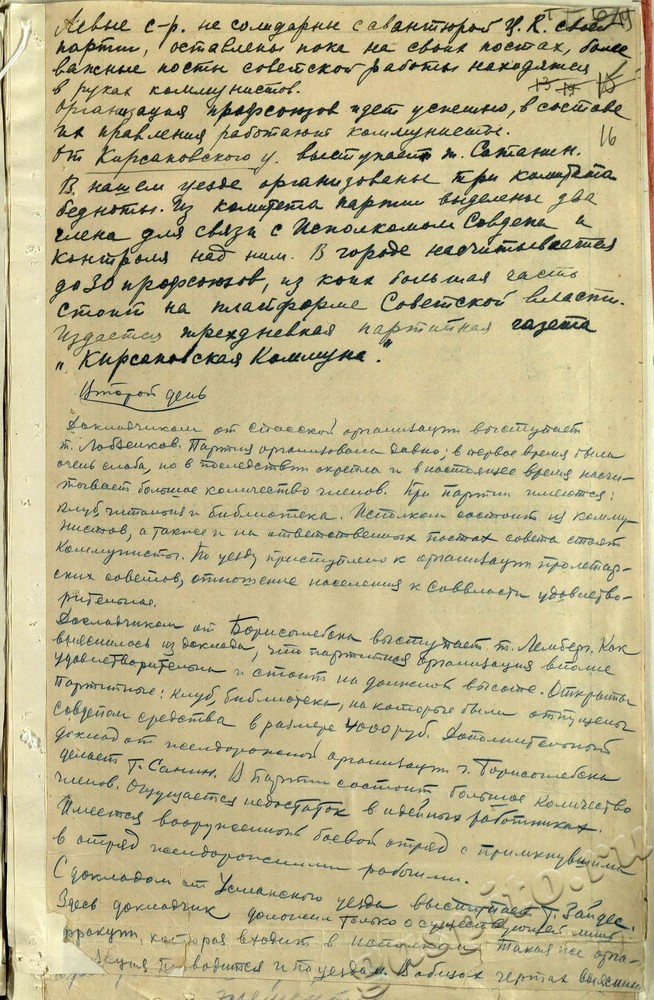 Левые с-р. не солидарны с авантюрой Ц.К. своей
партии, оставлены пока на своих постах, более
важные посты советской работы находятся
в руках коммунистов.
13 14 15
16
Организация профсоюзов идет успешно, в составе
их правления работают коммунисты.
От Кирсановского у. выступает т. Сатанин.
В нашем уезде организованы три комитета
бедноты. Из комитета партии выделены два
члена для связи с Исполкомом Совдепа и
контроля над ним. В городе насчитывается
до 30 профсоюзов, из коих большая часть
стоит на платформе Советской власти.
Издается трехдневная партийная газета
"Кирсановская Коммуна".
Второй день
Докладчиком от Спасской организации выступает
т. Лобзенков. Партия организована давно; в первое время была
очень слаба, но в последствии окрепла и в настоящее время насчи-
тывает большое количество членов. При партии имеются:
клуб читальня и библиотека. Исполком состоит из комму
нистов, а также и на ответственных постах совета стоят
Коммунисты. По уезду приступлено к организации пролетар-
ских советов, отношение населения к Соввласти удовлетво-
рительное.
Докладчиком от Борисоглебска выступает т. Лемберг. Как
выяснилось из доклада, что партийная организация вполне
удовлетворительна и стоит на должной высоте. Открыты
партийные: клуб, библиотека, на которые были отпущены
совдепом средства в размере 4000 руб. Дополнительный
доклад от железнодорожной организации г. Борисоглебска
делает т. Санин. В партии состоит большое количество
членов. Ощущается недостаток в идейных работниках.
Имеется вооруженный боевой отряд с примкнувшими
в отряд железнодорожными рабочими.
С докладом от Усманского уезда выступает т. Зайдес.
Здесь докладчик доложил только о существующей лишь
фракции, которая входит в исполком такая же орга-
низация проводится и по уездам. В общих чертах выяснил